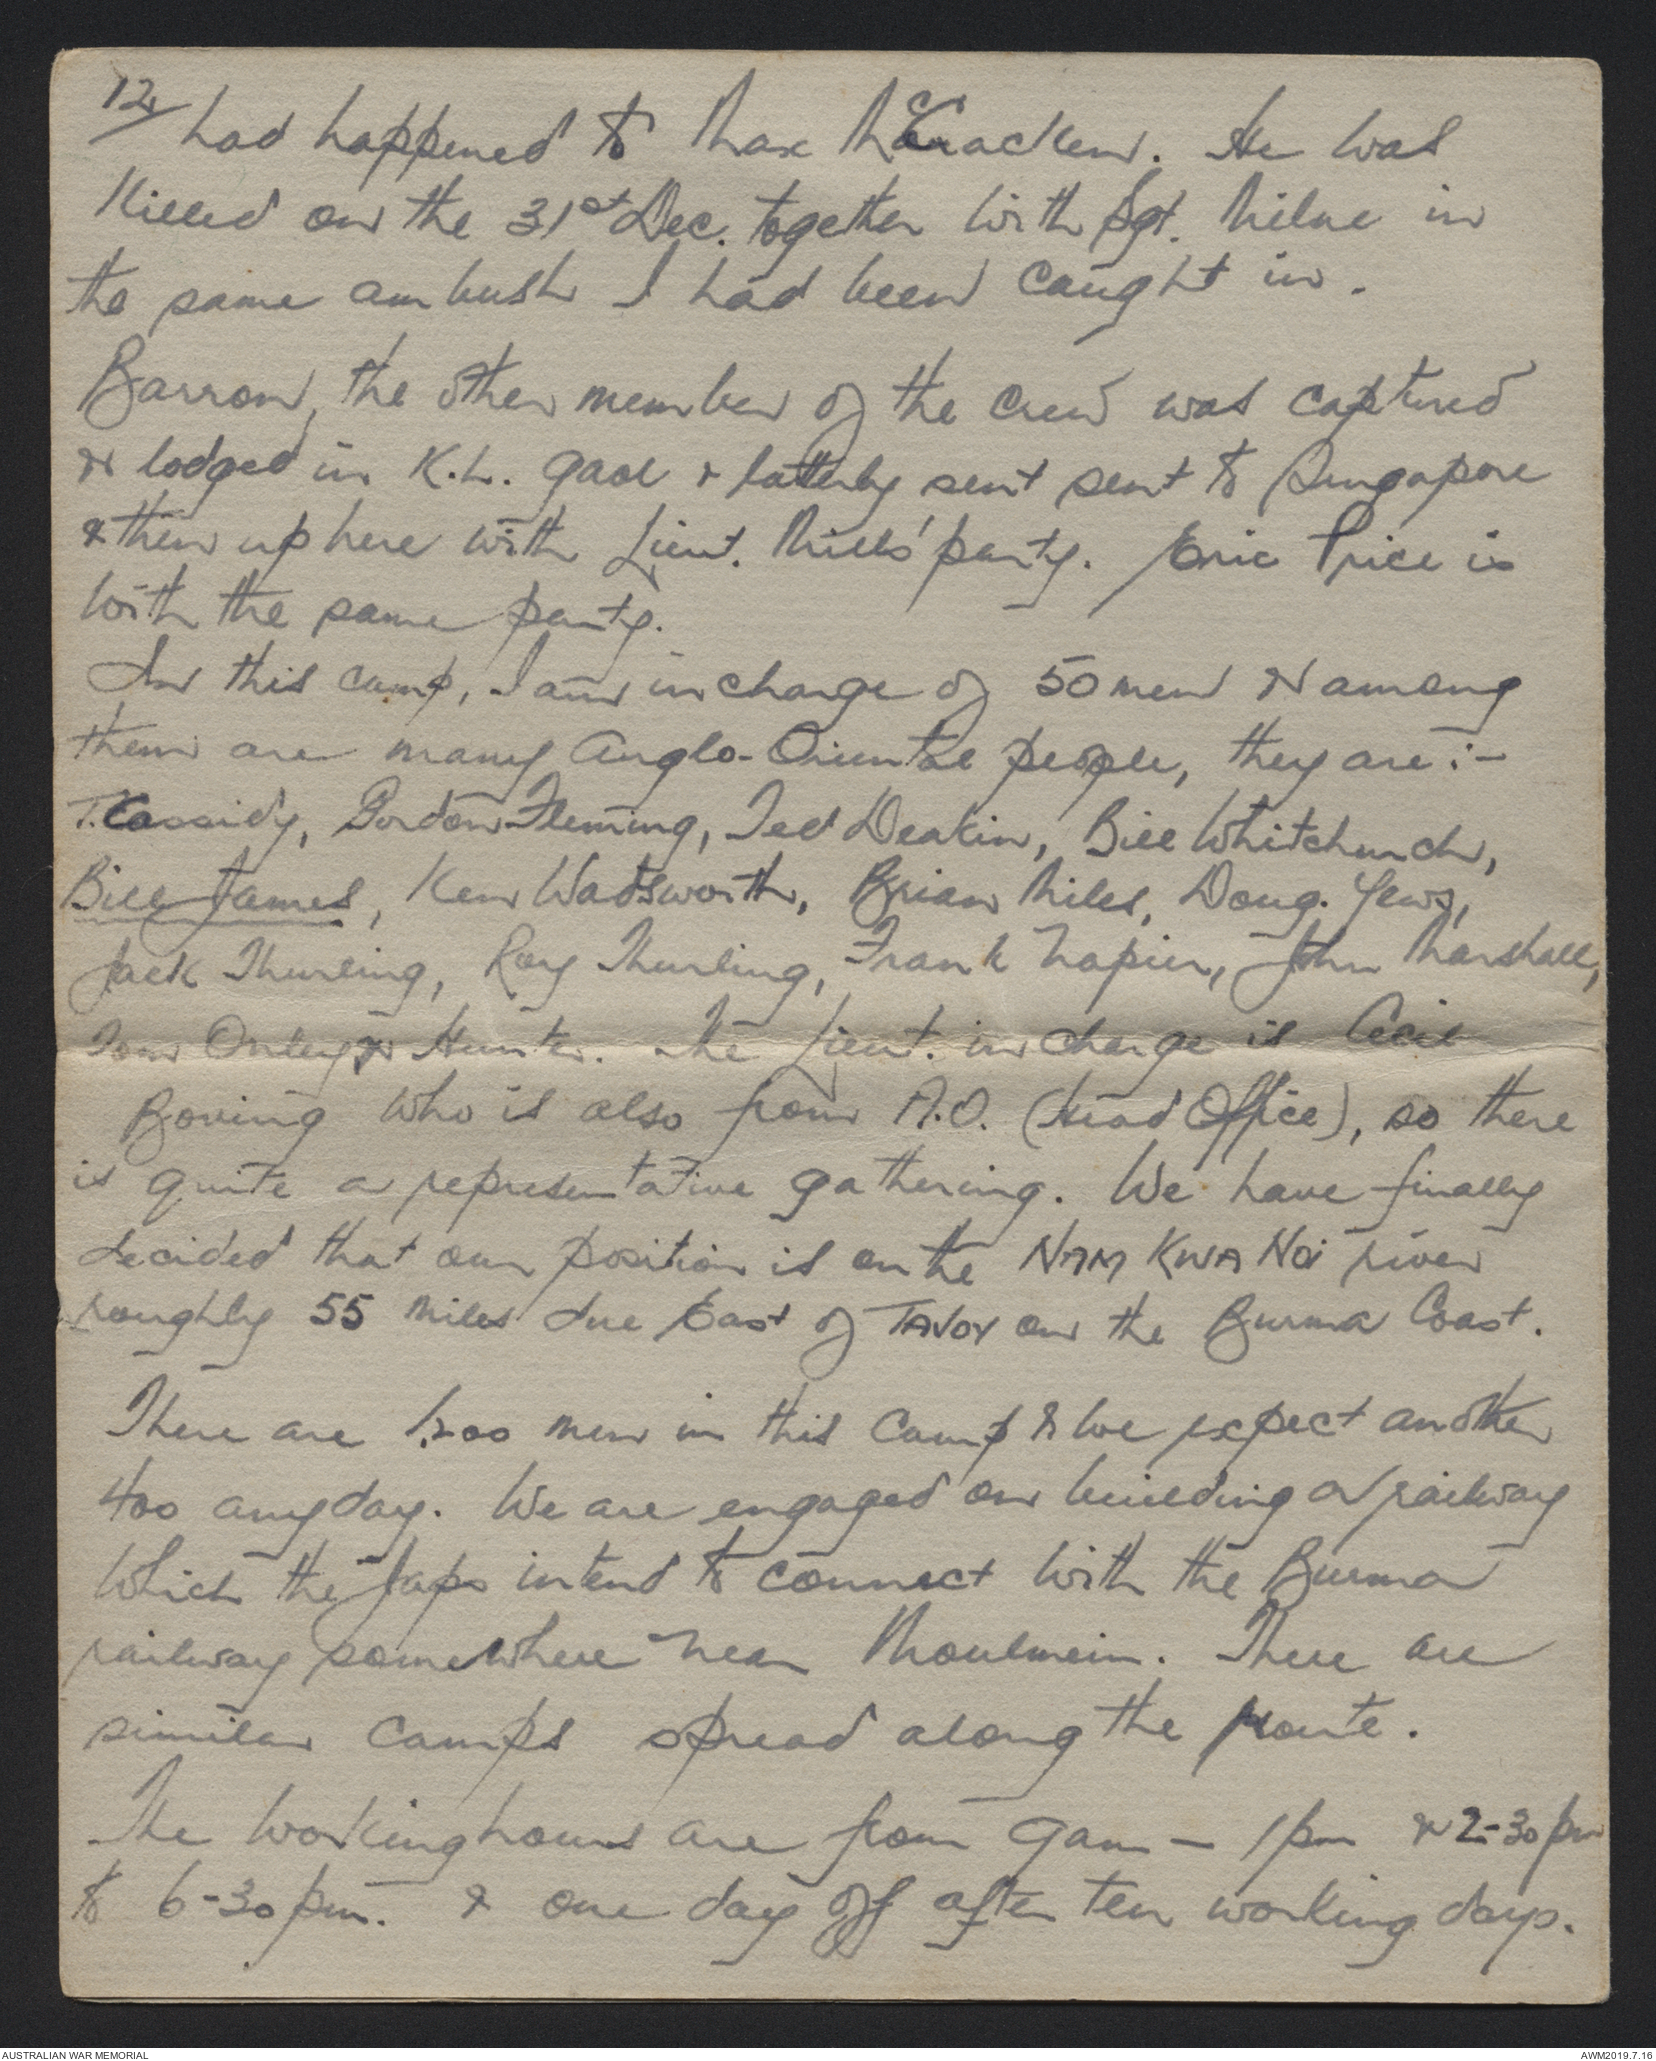 12/
had happened to Max McCracken. He was
killed on the 31st Dec. together with Sgt. Milne in
the same ambush I had been caught in.
Barron, the other member of the crew was captured
& lodged in K.L. gaol & latterly sent sent to Singapore
& then up here with Lieut. Mills' party. Eric Price is
with the same party.
In this camp, I am in charge of 50 men & among
them are many Anglo-Oriental people, they are :-
T. Cassidy, Gordon Fleming, Ted Deakin, Bill Whitchurch,
Bill James, Ken Wadsworth, Brian Miles, Doug. Yews,
Jack Thurling, Roy Thurling, Frank Napier, John Marshall,
Tom Onley & Hunter. The Lieut. in charge is Cecil
Boving who is also from A.O. (Head Office), so there
is quite a representative gathering. We have finally
decided that our position is on the NAM KWA NOI river
roughly 55 miles due East of TAVOY on the Burma Coast.
There are 1,200 men in this camp & we expect another
400 anyday. We are engaged on building a railway
which the Japs intend to connect with the Burma
railway somewhere near Moulmein. There are
similar camps spread along the route.
The working hours are from 9am - 1pm & 2-30pm
to 6-30pm. & one day off after ten working days.
AUSTRALIAN WAR MEMORIAL
AWM2019.7.16